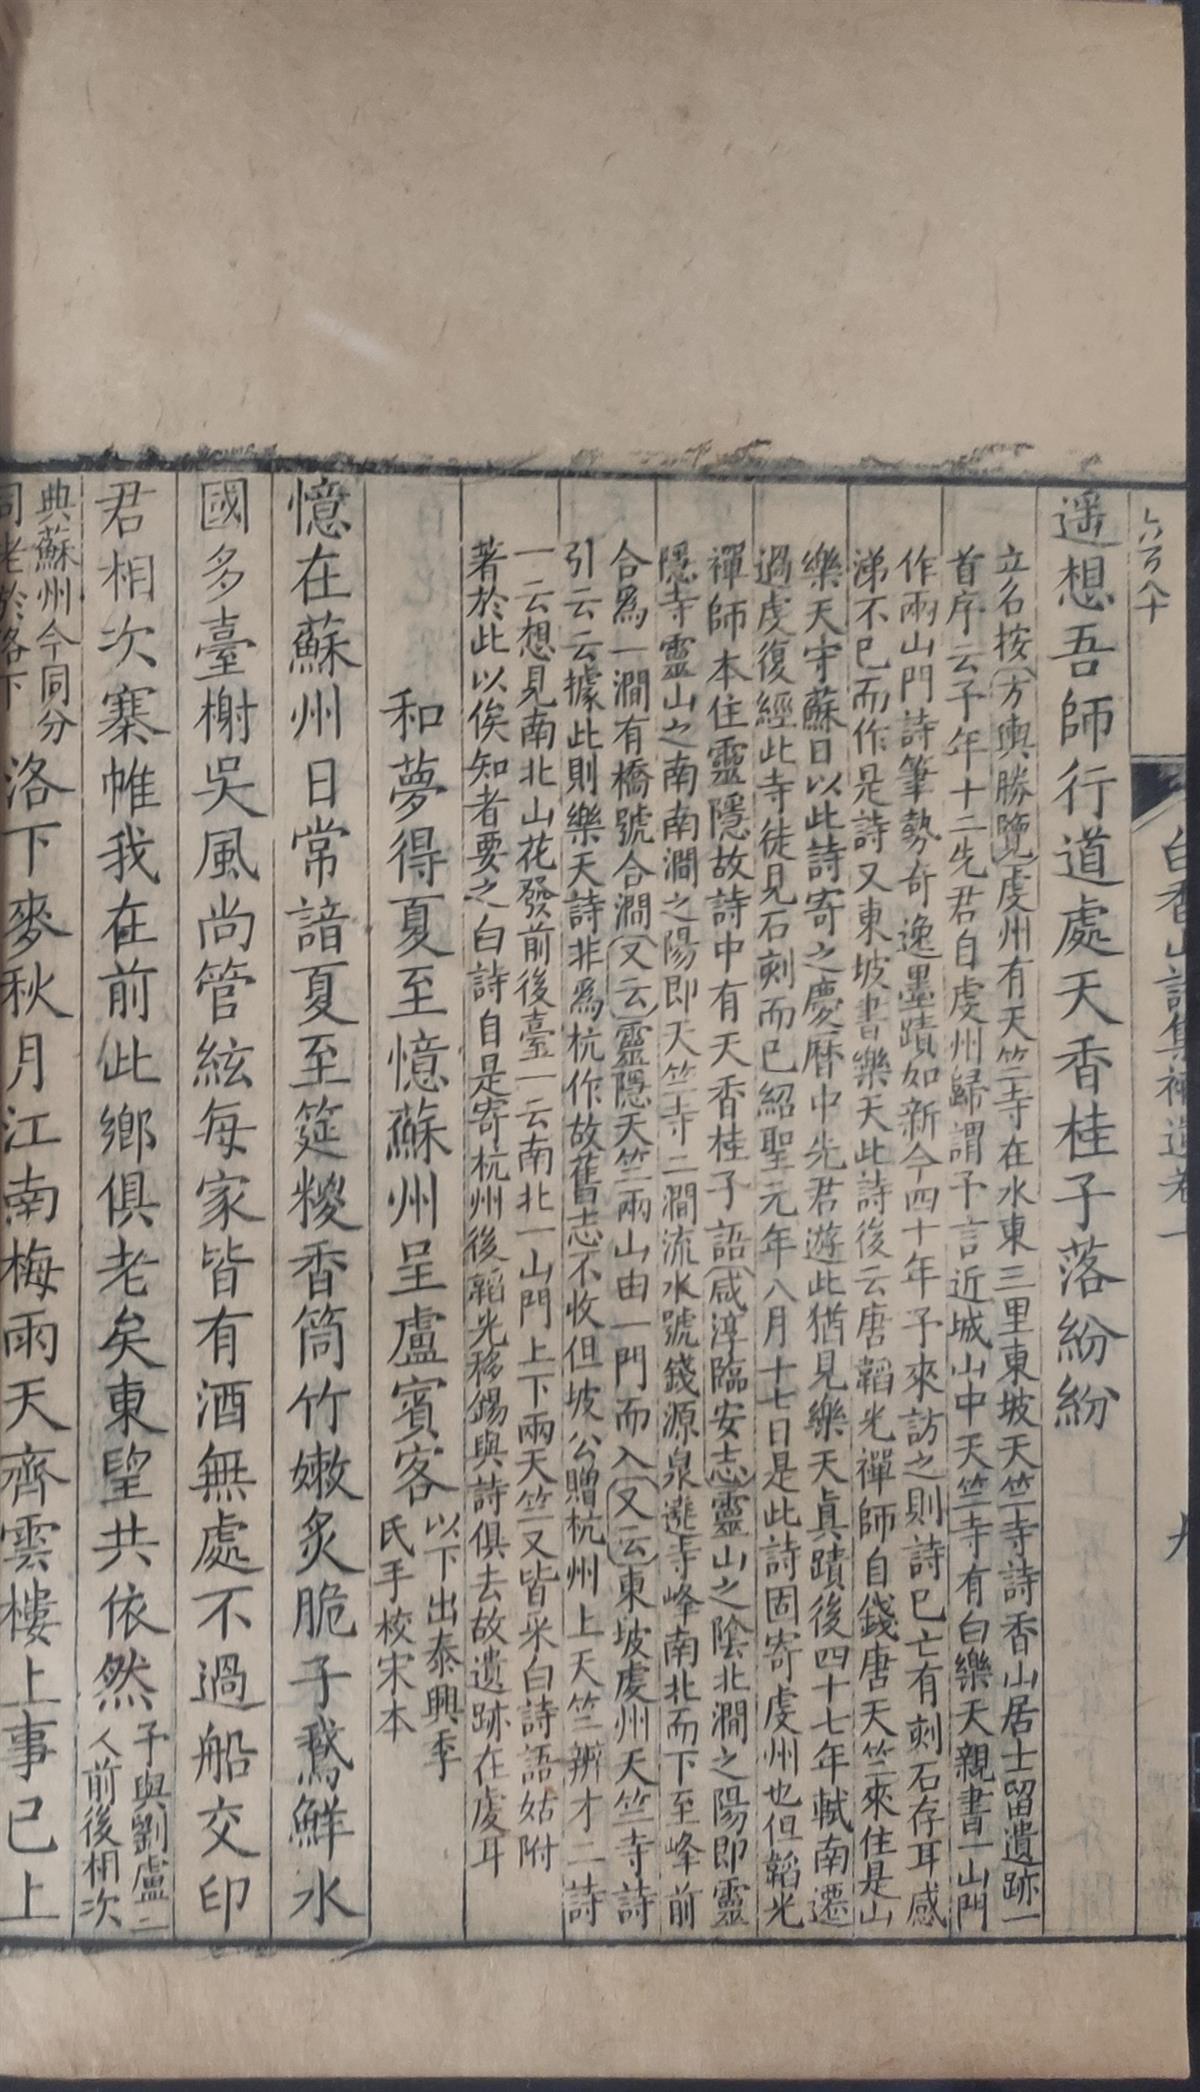 六百八十
白香山詩集補遺卷一
遥想吾師行道處天香桂子落紛紛
立名按方輿勝覽虔州有天竺寺在水東三里東坡天竺寺詩香山居士留遺跡一
首序云予年十二先君自虔州歸謂予言近城山中天竺寺有白樂天親書一山門
作兩山門詩筆勢奇逸墨蹟如新今四十年予來訪之則詩已亡有刻石存耳感
涕不已而作是詩又東坡書樂天此詩後云唐韜光禪師自錢唐天竺來住是山
樂天守蘇日以此詩寄之慶曆中先君遊此猶見樂天真蹟後四十七年軾南遷
過虔復經此寺徒見石刻而已紹聖元年八月十七日是此詩固寄虔州也但韜光
禪師本住靈隱故詩中有天香桂子語咸淳臨安志靈山之陰北澗之陽即靈
隱寺靈山之南南澗之陽即天竺寺二澗流水號錢源泉遶寺峰南北而下至峰前
合爲一澗有橋號合澗又云靈隱天竺兩山由一門而入又云東坡虔州天竺寺詩
引云云據此則樂天詩非爲杭作故舊志不收但坡公贈杭州上天竺辨才二詩
一云想見南北山花發前後臺一云南北一山門上下兩天竺又皆采白詩語姑附
著於此以俟知者要之白詩自是寄杭州後韜光移錫與詩俱去故遺跡在虔耳
和夢得夏至憶蘇州呈盧賓客
以下出泰興季
氏手校宋本
憶在蘇州日常諳夏至筵糉香筒竹嫩炙脆子鵞鮮水
國多臺榭吳風尚管絃每家皆有酒無處不過船交印
君相次褰帷我在前此鄉俱老矣東望共依然
予與劉盧二
人前後相次
典蘇州今同分
司老於洛下
洛下麥秋月江南梅雨天齊雲樓上事已上